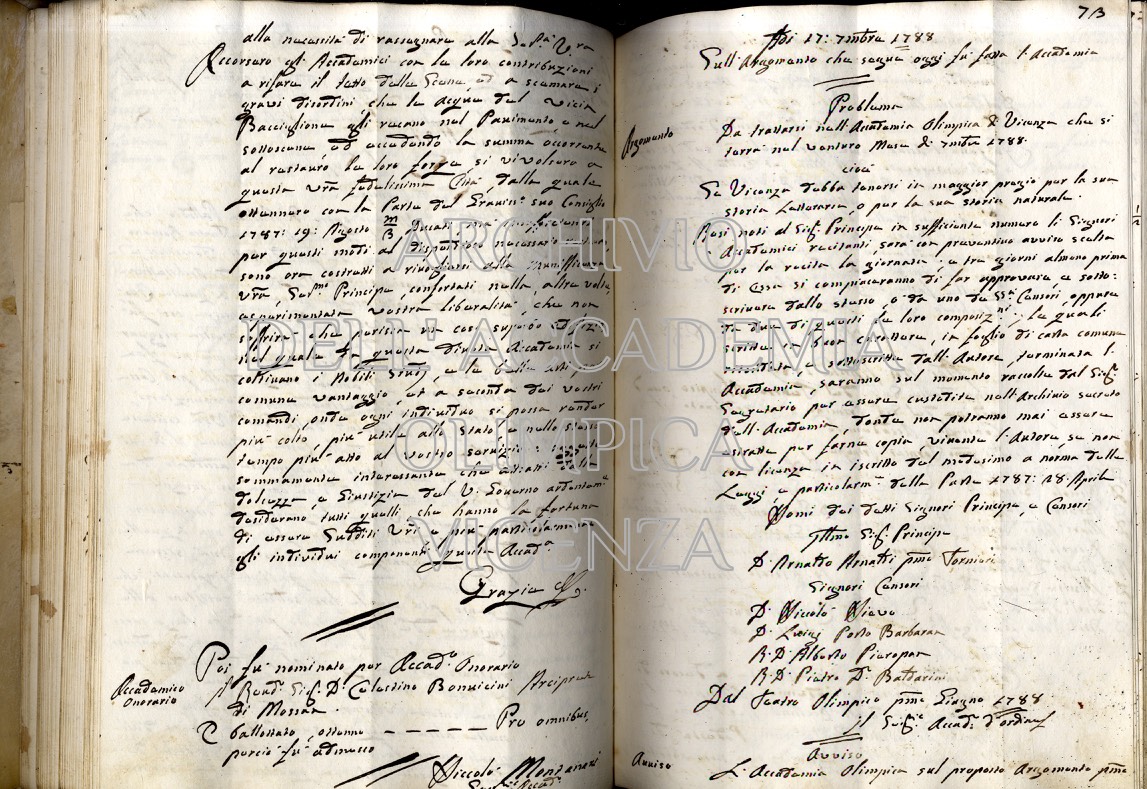 alla necessità di rassegnare alla Ser.tà V.ra
Accorsero gli Accademici con le loro contribuzioni
a rifare il tetto della Scena, ed a scemare i
gravi disordini, che le acque del vicin
Bacciglione gli recano nel Pavimento, e nel
sottoscena, ed accedendo la summa occorrente
al restauro le loro forze, si rivolsero a
questa vr̃a fedelissima Città, dalla quale
ottennero con la Parte del Gravis.mo suo Consiglio
1787: 19: Agosto
per questi modi al dispendioso necessario
sono ora costretti a rivolgersi alla Munificenza
vr̃a, Ser.mo Principe, confortati nella altre volte
esperimentata vostra liberalità, che non
soffrirà che perisca un così
nel quale da questa divota Accademia si
coltivano i Nobili Studj, e le belle arti a
comune vantaggio, et a seconda dei vostri
comandi, onde ogni individuo si possa render
più colto, più utile allo Stato, e nello stesso
tempo più atto al vostro servizio: oggetto
sommamente interessante che
dolcezza, e Giustizia del V. Governo ardentem.e
desiderano tutti quelli che hanno la fortuna
di essere Sudditi vr̃i, e più particolarmente
gli individui componenti questa Accad.a
Grazie &.
Poi fu nominato per Accad.o Onorario
Accademico
Onorario
il Rend. Sig.r D. Celestino Bonvicini Arciprete
di Mossan
E ballottato, ottenne - - - - - Pro omnibus,
perciò fu admesso
Niccolò Montanari
Seg.rio Accad.o
73
Adi 17: 7mbre 1788
Sull'Argomento che segue oggi fu fatta l'Accademia
Problema
Argomento
Da trattarsi nell'Accademia Olimpica di Vicenza che si
terrà nel venturo Mese di 7mbre 1788.
cioè
Se Vicenza debba tenersi in maggior pregio per la sua
storia Letteraria, o per la sua storia naturale.
Resi noti al Sig.r Principe in sufficiente numero li Signori
Accademici recitanti, sarà con preventivo avviso scelta
per la recita la giornata; e tre giorni almeno prima
di essa si compiaceranno di far approvare, e sotto:
scrivere dallo stesso, o da uno de SS.i Censori, oppure
da due di questi le loro composiz.ni. Le quali
scritte in buon carattere, in foglio di carta comune
recitate, e sottoscritte dall'Autore, terminata l'
Accademia, saranno sul momento raccolte dal Sig.r
Segretario per essere custodite nell'Archivio secreto
dell'Accademia, donde non potranno mai essere
estratte per farne copia vivente l'Autore se non
con licenza in iscritto del medesimo a norma delle
Leggi, e particolarm.e della Parte 1787: 28: Aprile
Nomi dei detti Signori Principe e Censori
Ill.mo Sig.r Principe
D. Arnaldo Arnaldi p.mo Tornieri
Signori Censori
D. Niccolò Nievo
D. Luigi Porto Barbaran
R.D. Alberto Pieropan
R.D. Pietro D.r Baldarini
Dal Teatro Olimpico p.mo Giugno 1788
Il Seg.rio Accad.o d'ordine
Avviso
Avviso
L'Accademia Olimpica sul proposto Argomento p.mo
ARCHIVIO
DELL'ACCADEMIA
OLIMPICA
VICENZA